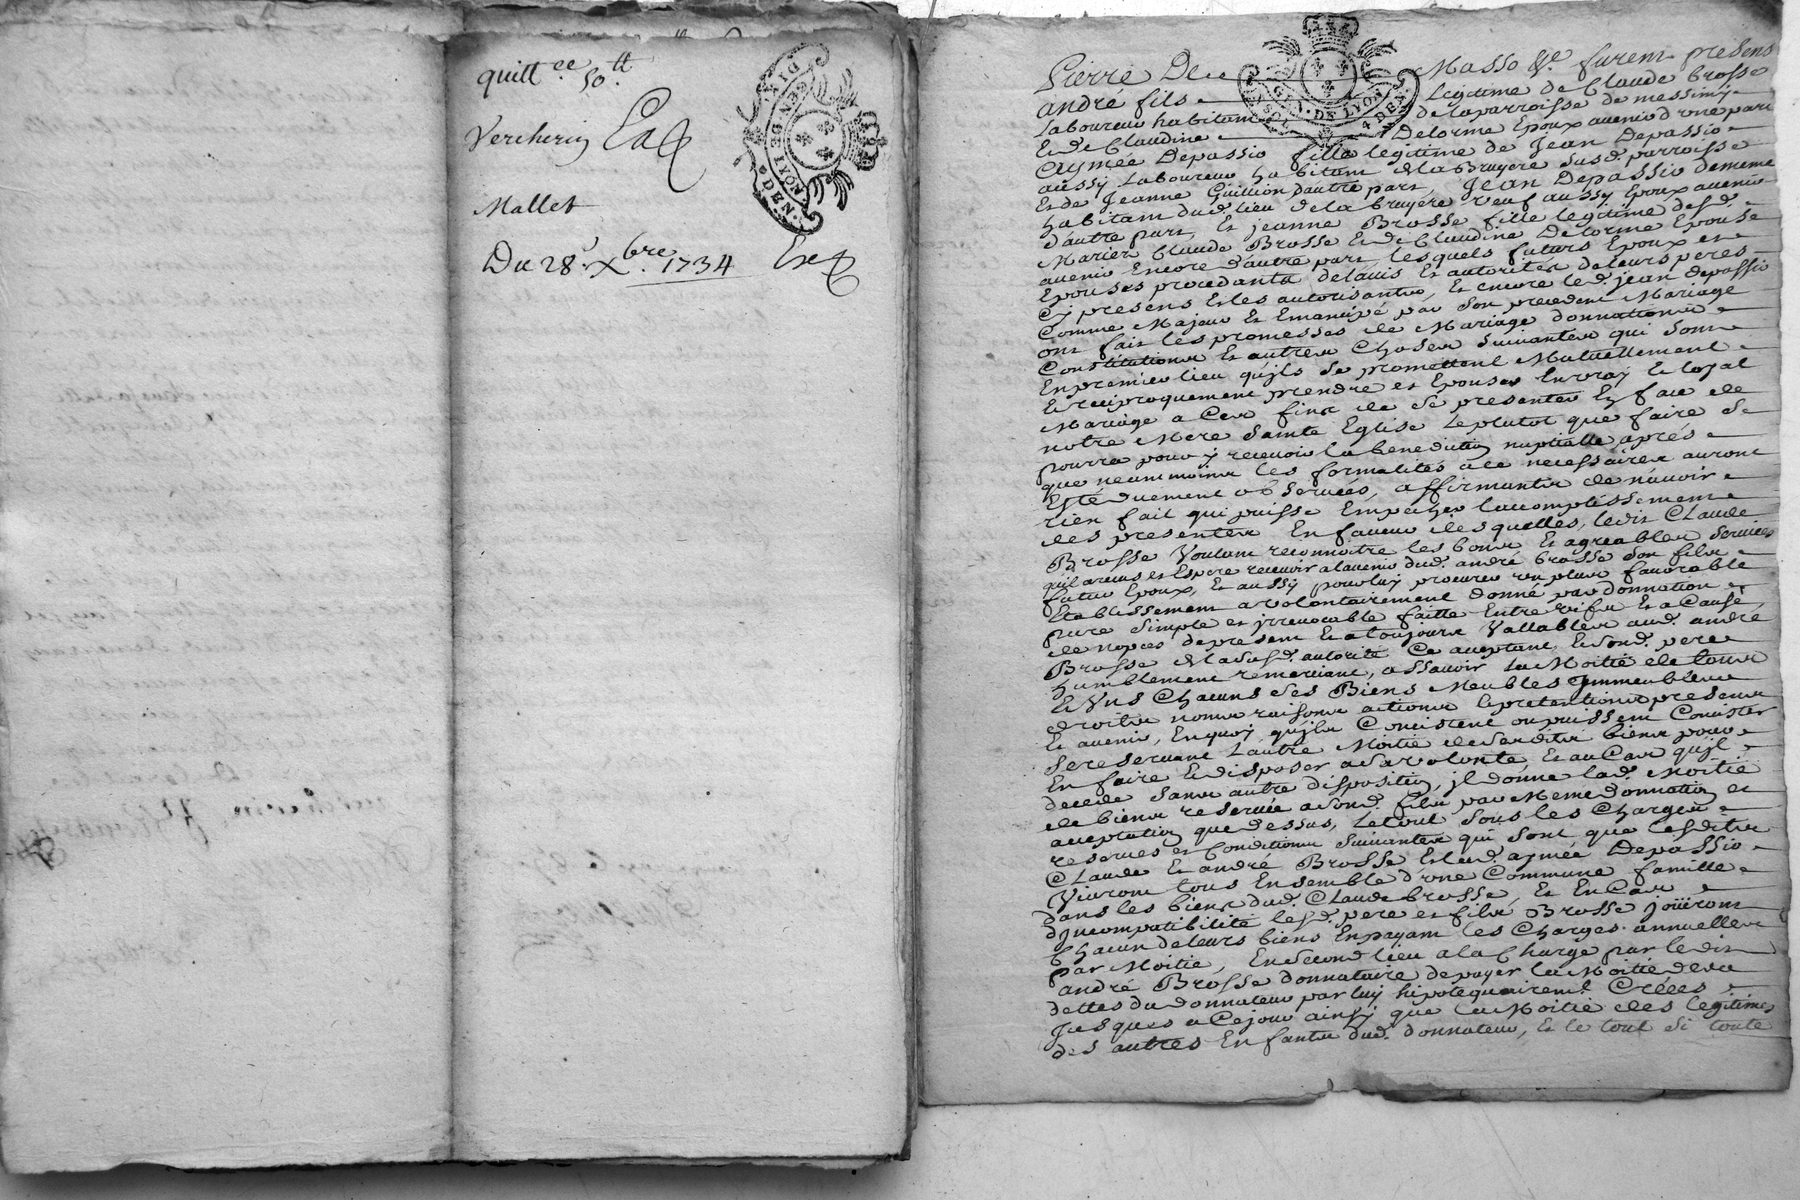 quitt.ce 50.tt
Vercherin
Mallet
Du 28.e Xbre. 1734
GEN. DE LYON
DEN.
Pierre De Masso &.e furent presens
GEN. DE LYON
4 DEN.
andré fils legitime de Claude Brosse
Laboureur habitant de la parroisse de messimy
Et de Claudine Delorme Epoux avenir d'une part
Aymée Depassio fille legitime de Jean Depassio
aussy Laboureur habitant de la Bruyere susd. parroisse
Et de Jeanne Guillion d'autre part, Jean Depassio de meme
habitant dud. lieu de la bruyere veuf aussy Epoux avenir
d'autre part, Et jeanne Brosse fille legitime desd.
Marier Claude Brosse Et de Claudine Delorme Epouse
avenir Encore d'autre part, lesquels futurs Epoux et
Epouses procedants de lavis Et autorités de leurs peres
Cy presens Et les autorisants, Et encore led. jean depassio
Comme Majeur Et Emancipé par son precedent Mariage
ont fait les promesses de Mariage donnations
Constitutions Et autres Choses suivantes qui sont
En premier lieu qu'ils se promettent Mutuellement
Et reciproquement prendre et Epouser En vray Et loyal
Mariage a Ces fins de se presenter En face de
notre Mere Sainte Eglise le plutot que faire se
pourra pour y recevoir la benediction nuptialle aprés
que neantmoins les formalités a ce necessaires auront
Esté duement observées, affirmants de n'avoir
rien fait qui puisse Empecher laccomplissement
des presentes En faveur des quelles, ledit Claude
Brosse Voulant reconnoitre les bons Et agreables services
qu'il a recus et Espere recevoir a lavenir dud. andré brosse son fils
futur Epoux, Et aussy pour luy procurer un plus favorable
Etablissement a volontairement donné par donnation
pure simple et irrevocable faitte Entre vifs Et a Cause
de nopces de present Et a toujours Vallables aud. andré
Brosse de la susd. autorité Ce acceptant Et sond. pere
humblement remerciant, assavoir La Moitié de tous
Et Uns Chacuns ses Biens Meubles Immeubles
droits noms raisons actions Et pretentions presens
Et avenir, En quoy qu'ils Concistent ou puissent Concister
se reservant Lautre Moitié desdits biens pour
En faire Et disposer a sa volonté, Et au Cas qu'il
decede sans autre disposition, il donne lad. Moitié
de biens reservée a sond. fils par Meme donnation et
acceptation que dessus, Le tout sous les Charges
reserves et Conditions suivantes qui sont que lesdits
Claude Et andré Brosse Et lad. aymée Depassio
Vivront tous Ensemble d'une Commune famille
dans les biens dud. Claude brosse, Et En Cas
d'incompatibilité lesd. pere et fils Brosse joüiront
Chacun de leurs biens En payant les Charges annuelles
par Moitié, En second lieu a la Charge par ledit
andré Brosse donnataire de payer la Moitié des
dettes du donnateur par luy hipotequairemt. Créées
Jusques a Ce jour ainsy que la Moitié des legitimes
des autres Enfants dud. donnateur, Et le tout si toute